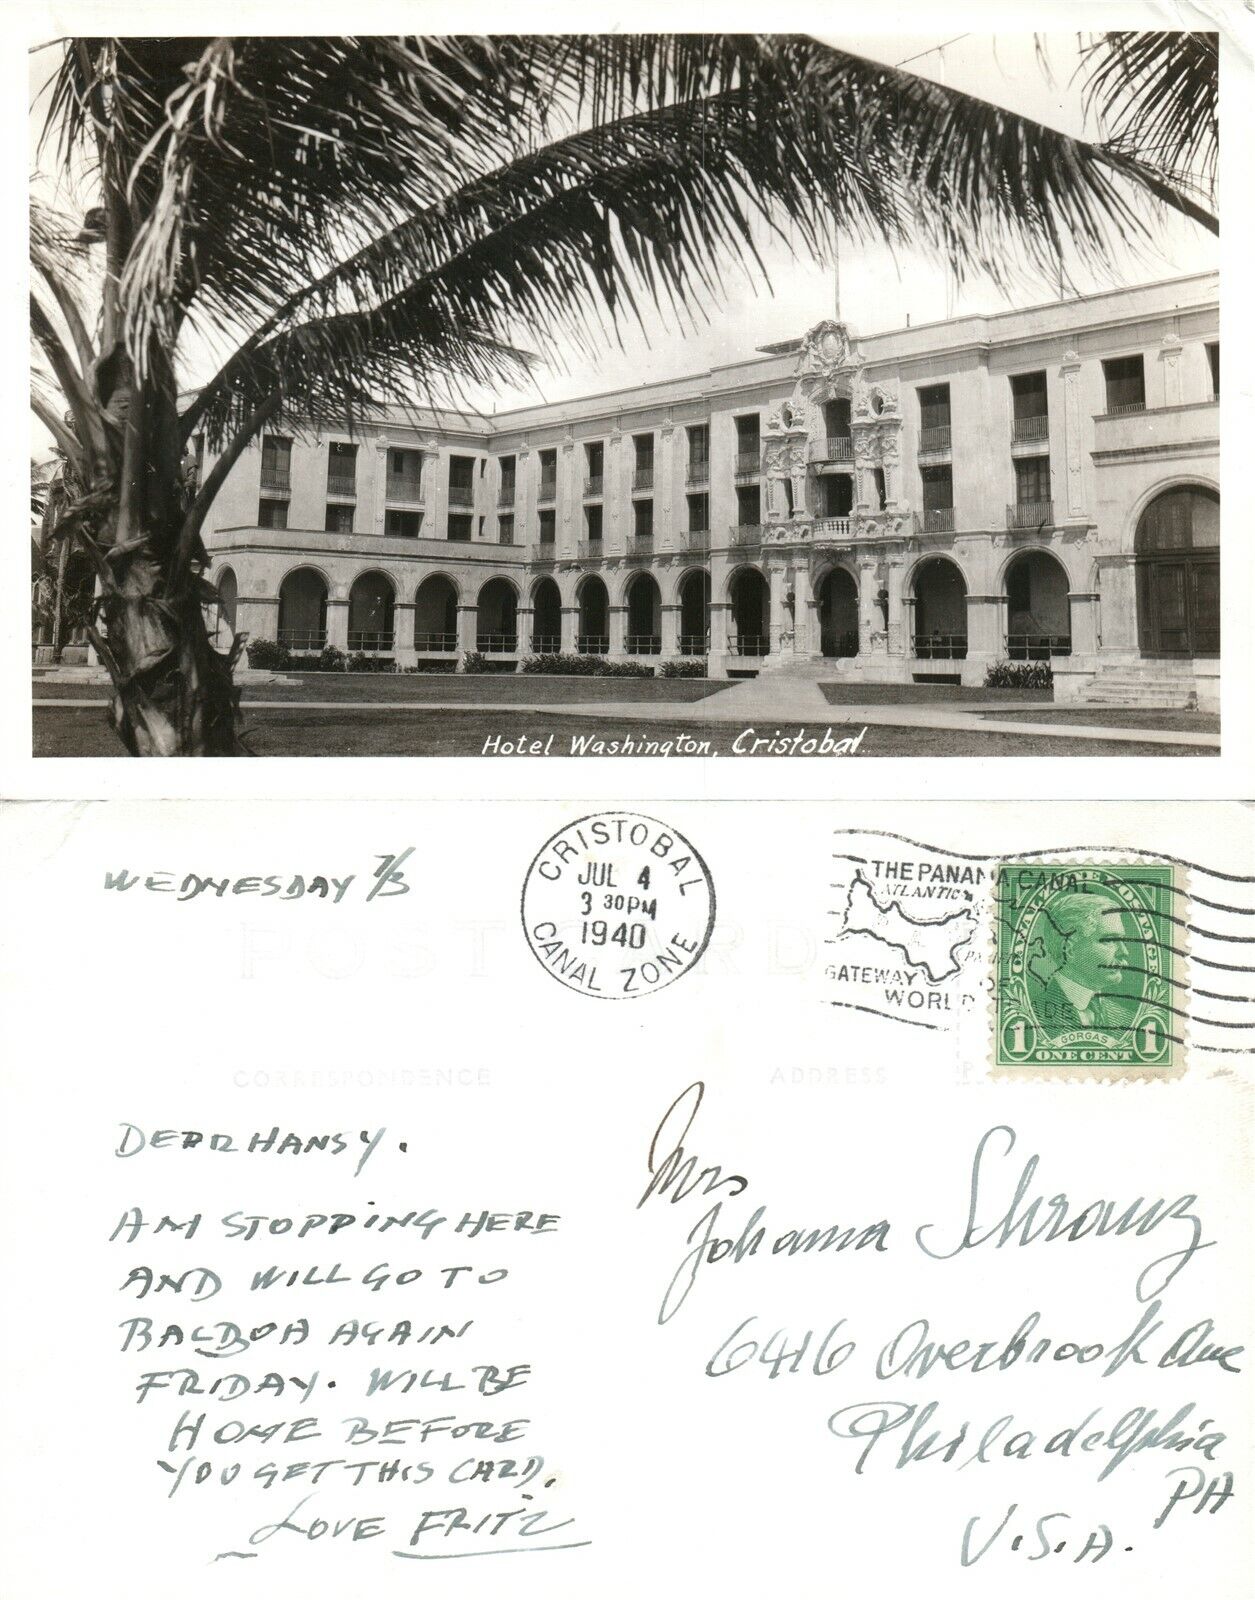 Hotel Washington, Cristobal
WEDNESDAY 7/3
CRISTOBAL
JUL 4
3 30 PM
1940
CANAL ZONE
THE PANAMA CANAL
ATLANTIC
GATEWAY OF
WORLD TRADE
CANAL ZONE POSTAGE
GORGAS
1 ONE CENT 1
POST CARD
CORRESPONDENCE
ADDRESS
DEAR HANSY.
AM STOPPING HERE
AND WILL GO TO
BALBOA AGAIN
FRIDAY. WILL BE
HOME BEFORE
YOU GET THIS CARD.
LOVE FRITZ
Mrs
Johanna Schranz
6416 Overbrook Ave
Philadelphia
PA
U.S.A.